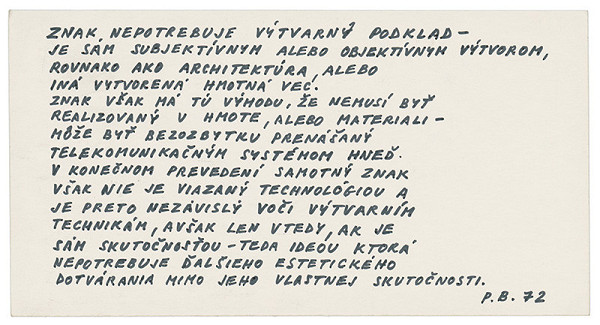 ZNAK NEPOTREBUJE VÝTVARNÝ PODKLAD –
JE SÁM SUBJEKTÍVNYM ALEBO OBJEKTÍVNYM VÝTVOROM,
ROVNAKO AKO ARCHITEKTÚRA, ALEBO
INÁ VYTVORENÁ HMOTNÁ VEC.
ZNAK VŠAK MÁ TÚ VÝHODU, ŽE NEMUSÍ BYŤ
REALIZOVANÝ V HMOTE, ALEBO MATERIALI –
MÔŽE BYŤ BEZOZBYTKU PRENÁŠANÝ
TELEKOMUNIKAČNÝM SYSTÉMOM HNEĎ.
V KONEČNOM PREVEDENÍ SAMOTNÝ ZNAK
VŠAK NIE JE VIAZANÝ TECHNOLÓGIOU A
JE PRETO NEZÁVISLÝ VOČI VÝTVARNÍM
TECHNIKÁM, AVŠAK LEN VTEDY, AK JE
SÁM SKUTOČNOSŤOU – TEDA IDEOU KTORÁ
NEPOTREBUJE ĎALŠIEHO ESTETICKÉHO
DOTVÁRANIA MIMO JEHO VLASTNEJ SKUTOČNOSTI.
P.B. 72